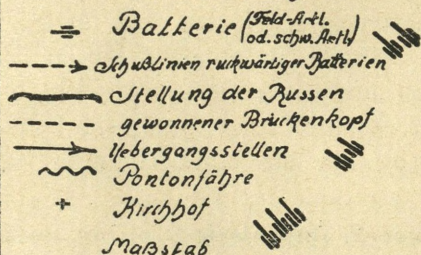 Batterie (Feld-Artl.
od. schw. Artl.)
Schußlinien rückwärtiger Batterien
Stellung der Russen
gewonnener Brückenkopf
Uebergangsstellen
Pontonfähre
Kirchhof
Maßstab